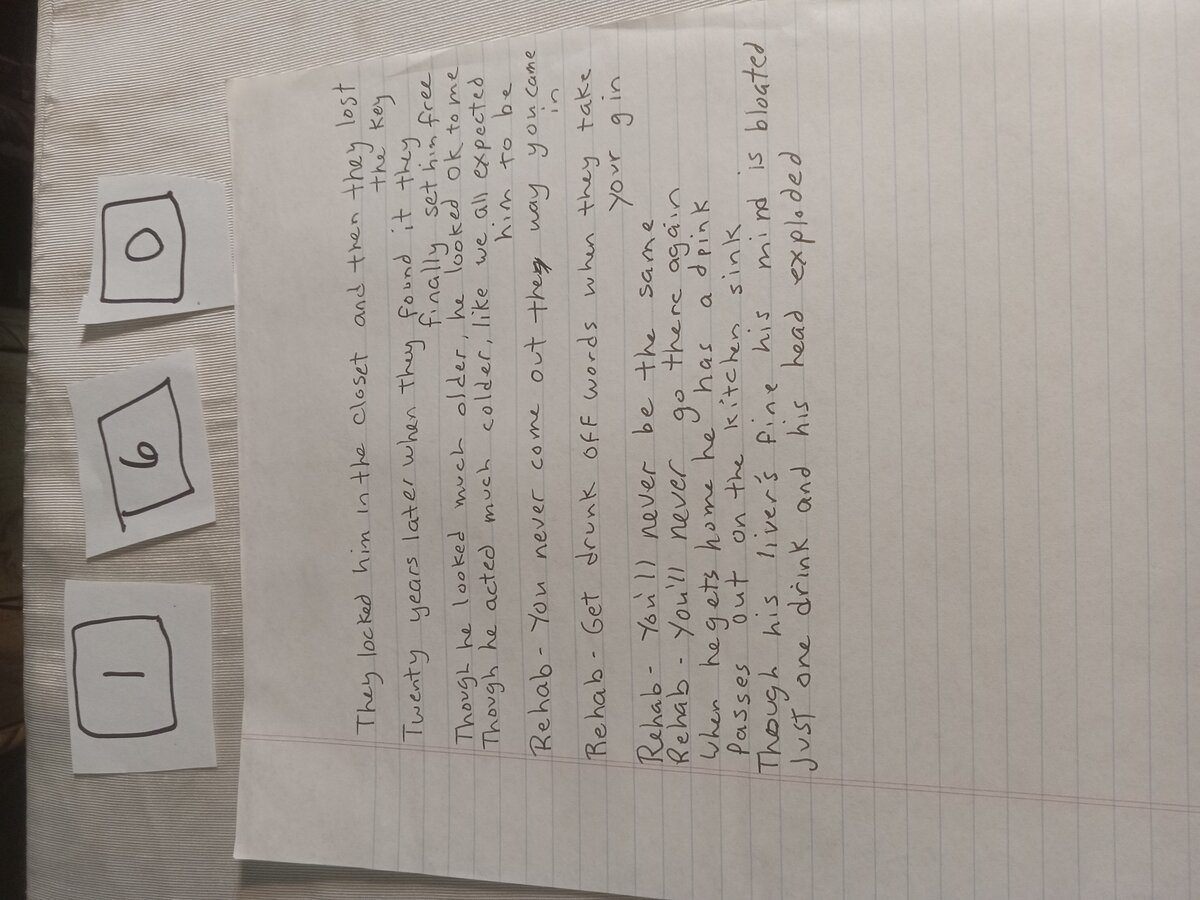 1 6 0
They locked him in the closet and then they lost
the key
Twenty years later when they found it they
finally set him free
Though he looked much older, he looked ok to me
Though he acted much colder, like we all expected
him to be
Rehab - You never come out they way you came
in
Rehab - Get drunk off words when they take
your gin
Rehab - You'll never be the same
Rehab - You'll never go there again
When he gets home he has a drink
Passes out on the kitchen sink
Though his liver's fine his mind is bloated
Just one drink and his head exploded